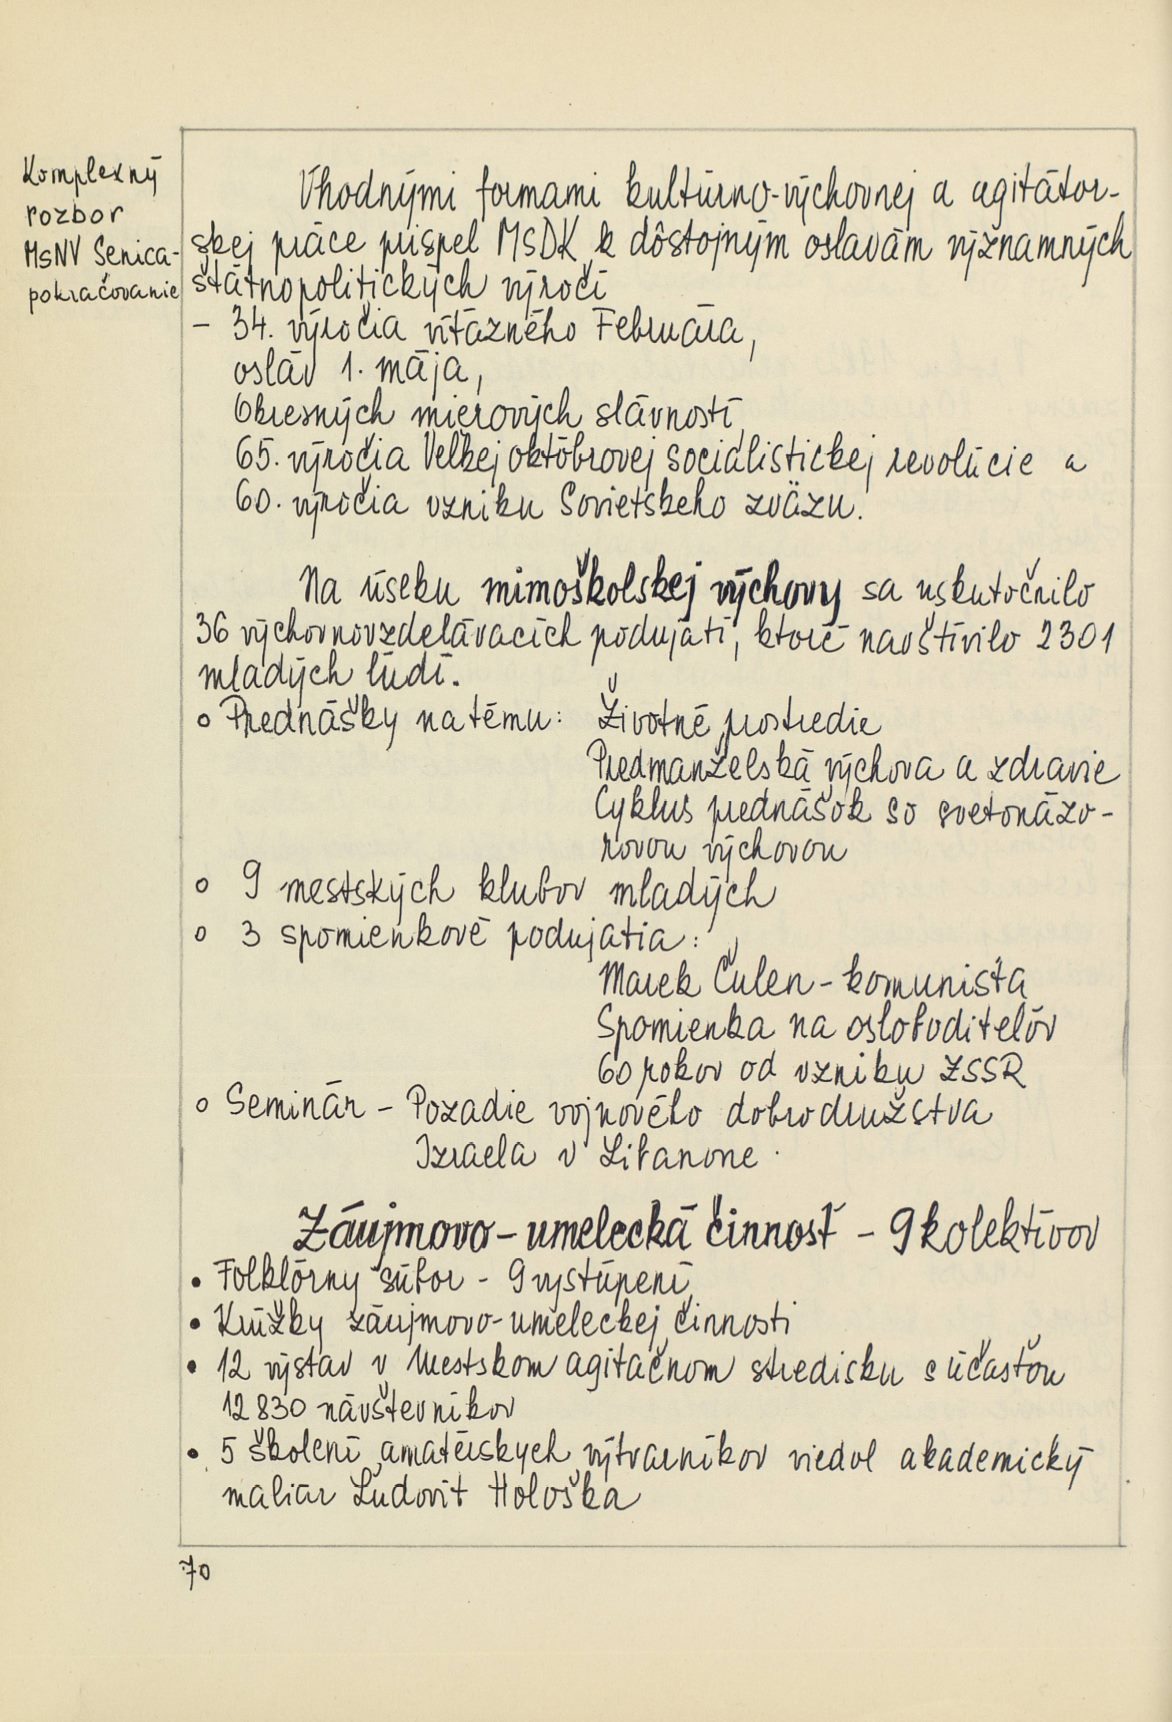 Komplexný
rozbor
MsNV Senica-
pokračovanie
Vhodnými formami kultúrno-výchovnej a agitátor-
skej práce prispel MsDK k dôstojným oslavám významných
štátnopolitických výročí
- 34. výročia víťazného Februára,
osláv 1. mája,
Okresných mierových slávností,
65. výročia Veľkej októbrovej socialistickej revolúcie a
60. výročia vzniku Sovietskeho zväzu.
Na úseku mimoškolskej výchovy sa uskutočnilo
36 výchovnovzdelávacích podujatí, ktoré navštívilo 2301
mladých ľudí.
o Prednášky na tému: Životné prostredie
Predmanželská výchova a zdravie
Cyklus prednášok so svetonázo-
rovou výchovou
o 9 mestských klubov mladých
o 3 spomienkové podujatia:
Marek Čulen - komunista
Spomienka na osloboditeľov
60 rokov od vzniku ZSSR
o Seminár - Pozadie vojnového dobrodružstva
Izraela v Libanone.
Záujmovo-umelecká činnosť - 9 kolektívov
• Folklórny súbor - 9 vystúpení
• Krúžky záujmovo-umeleckej činnosti
• 12 výstav v Mestskom agitačnom stredisku s účasťou
12 830 návštevníkov
• 5 školení amatérskych výtvarníkov viedol akademický
maliar Ľudovít Hološka
70